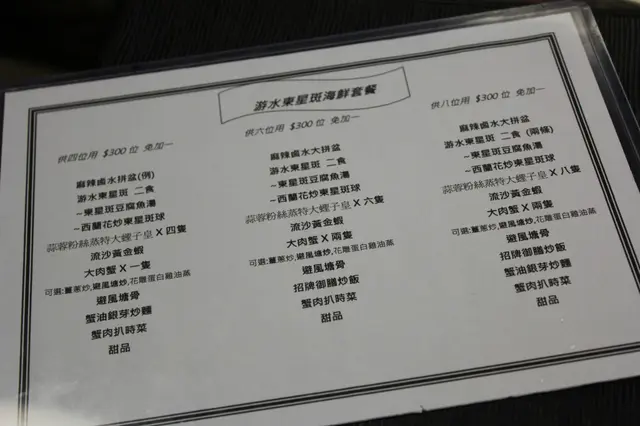 游水東星斑海鮮套餐
供四位用 $300 位 免加一
麻辣鹵水拼盆(例)
游水東星斑 二食
~東星斑豆腐魚湯
~西蘭花炒東星斑球
蒜蓉粉絲蒸特大蟶子皇 X 四隻
流沙黃金蝦
大肉蟹 X 一隻
可選:薑蔥炒,避風塘炒,花雕蛋白雞油蒸
避風塘骨
蟹油銀芽炒麵
蟹肉扒時菜
甜品
供六位用 $300 位 免加一
麻辣鹵水大拼盆
游水東星斑 二食
~東星斑豆腐魚湯
~西蘭花炒東星斑球
蒜蓉粉絲蒸特大蟶子皇 X 六隻
流沙黃金蝦
大肉蟹 X 兩隻
可選:薑蔥炒,避風塘炒,花雕蛋白雞油蒸
避風塘骨
招牌御膳炒飯
蟹肉扒時菜
甜品
供八位用 $300 位 免加一
麻辣鹵水大拼盆
游水東星斑 二食 (兩條)
~東星斑豆腐魚湯
~西蘭花炒東星斑球
蒜蓉粉絲蒸特大蟶子皇 X 八隻
流沙黃金蝦
大肉蟹 X 兩隻
可選:薑蔥炒,避風塘炒,花雕蛋白雞油蒸
避風塘骨
招牌御膳炒飯
蟹油銀芽炒麵
蟹肉扒時菜
甜品